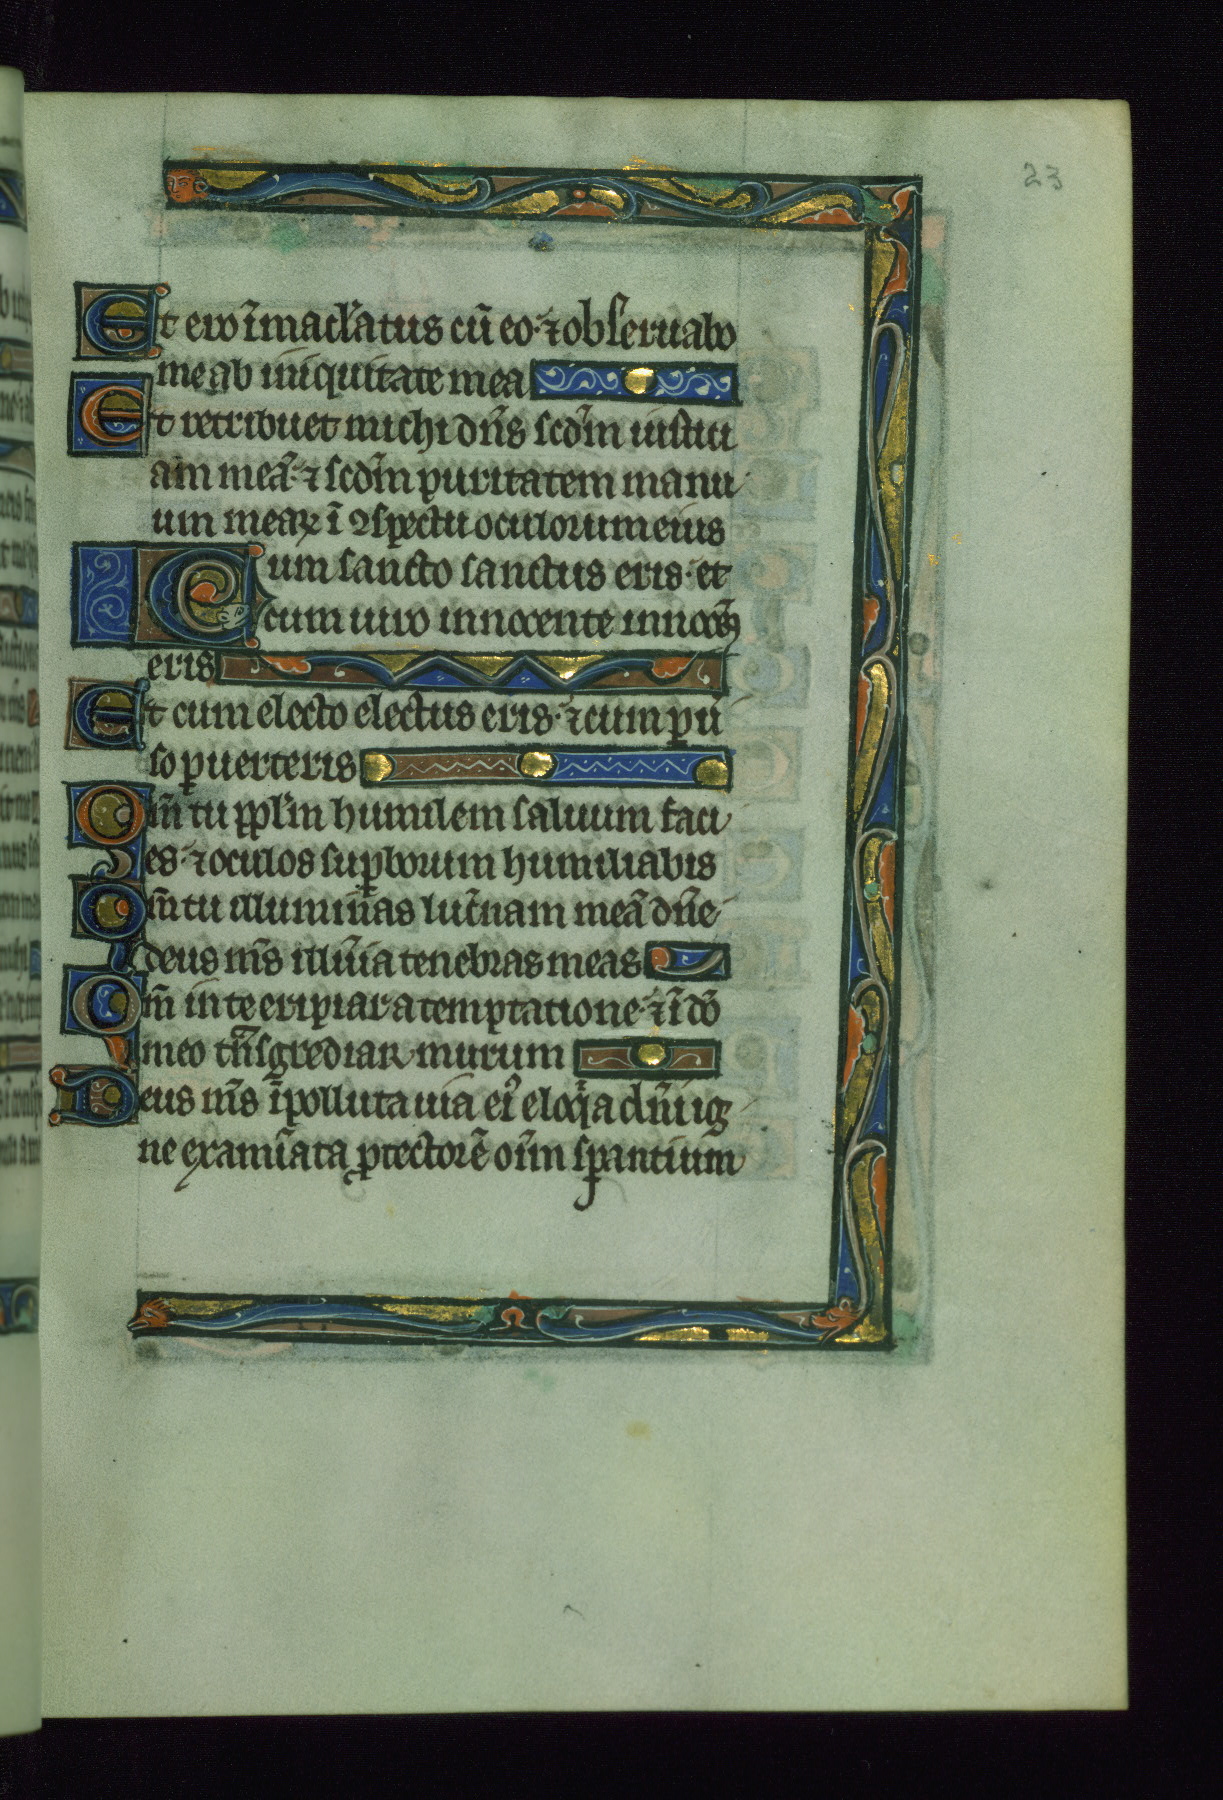 23
Et ero im̄acl̄atus cū eo· ⁊ obseruabo
me ab iniquitate mea
Et retribuet michi dn̄s scd̄m iustici
am meā· ⁊ scd̄m puritatem manu
um meaꝝ ī ꝯspectu oculorum eius
Cum sancto sanctus eris· et
cum uiro innocente innocēs
eris
Et cum electo electus eris· ⁊ cum ꝑu
so ꝑuerteris
Qm̄ tu ppl̄m humilem saluum faci
es· ⁊ oculos suꝑborum humiliabis
Qm̄ tu illumin̄as luc̄nam meā dn̄e
deus ms̄ illūia tenebras meas
Qm̄ in te eripiar a temptatione· ⁊ ī dō
meo tn̄sgrediar murum
Deus ms̄ īpolluta uia eiꝰ eloq̄a dn̄i ig
ne examīata ꝓtectorē oīm sꝑantium